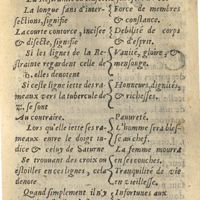 La longue sans d'inter-
sections, signifie
Force de membres
& constance.
La courte contorce, incisee
& disecte, signifie
Debilité de corps
& d'esprit.
Si les lignes de la Re-
strainte regardent celle de
♄, elles denotent
Vanité, gloire, &
mensonge.
Si ceste ligne iette des ra-
meaux vers la tubercule de
♃, se sont
Honneurs, dignités,
& richesses.
Au contraire.
Pauureté.
Lors qu'elle iette ses ra-
meaux entre le doigt in-
dice & celuy de Saturne
L'homme sera blessé
au chef.
La femme mourra
en ses couches.
Se trouuant des croix ou
estoilles en ces lignes, cela
denote
Tranquilité de vie
en vieillesse.
Quand simplement il n'y
Infortunes aux